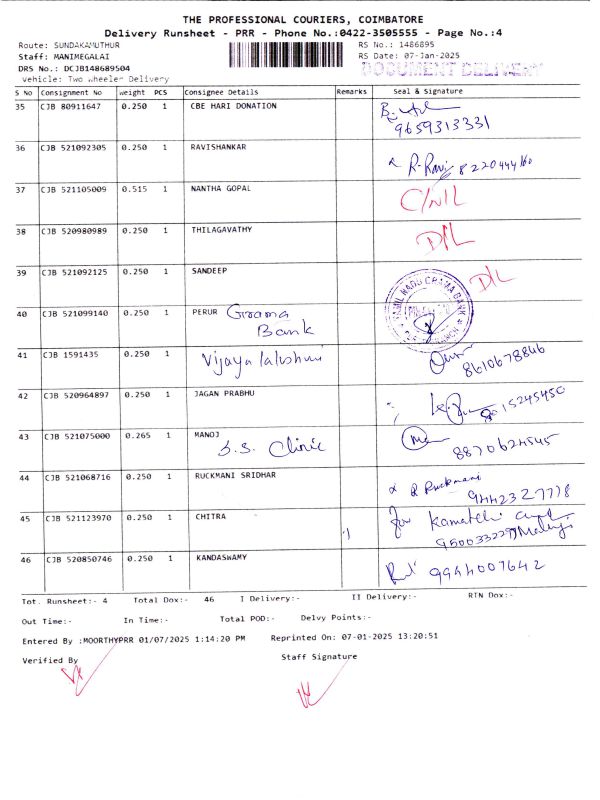 THE PROFESSIONAL COURIERS, COIMBATORE
Delivery Runsheet - PRR - Phone No.:0422-3505555 - Page No.:4
Route: SUNDAKAMUTHUR RS No.: 1486895
Staff: MANIMEGALAI RS Date: 07-Jan-2025
DRS No.: DCJB148689504 DOCUMENT DELIVERY
Vehicle: Two Wheeler Delivery
S No Consignment No Weight PCS Consignee Details Remarks Seal & Signature
35 CJB 80911647 0.250 1 CBE HARI DONATION
9659313331
36 CJB 521092305 0.250 1 RAVISHANKAR R-Ravi
37 CJB 521105009 0.515 1 NANTHA GOPAL
38 CJB 520980989 0.250 1 THILAGAVATHY D/L
39 CJB 521092125 0.250 1 SANDEEP D/L
40 CJB 521099140 0.250 1 PERUR Grama
Bank
41 CJB 1591435 0.250 1 Vijaya lakshmi
8610678846
42 CJB 520964897 0.250 1 JAGAN PRABHU
43 CJB 521075000 0.265 1 MANOJ
S.S. Clinic 8870624545
44 CJB 521068716 0.250 1 RUCKMANI SRIDHAR R Ruckmani
9442327778
45 CJB 521123970 0.250 1 CHITRA for Kamatchi
46 CJB 520850746 0.250 1 KANDASWAMY 9944007642
Tot. Runsheet:- 4 Total Dox:- 46 I Delivery:- II Delivery:- RTN Dox:-
Out Time:- In Time:- Total POD:- Delvy Points:-
Entered By :MOORTHYPRR 01/07/2025 1:14:20 PM Reprinted On: 07-01-2025 13:20:51
Verified By Staff Signature